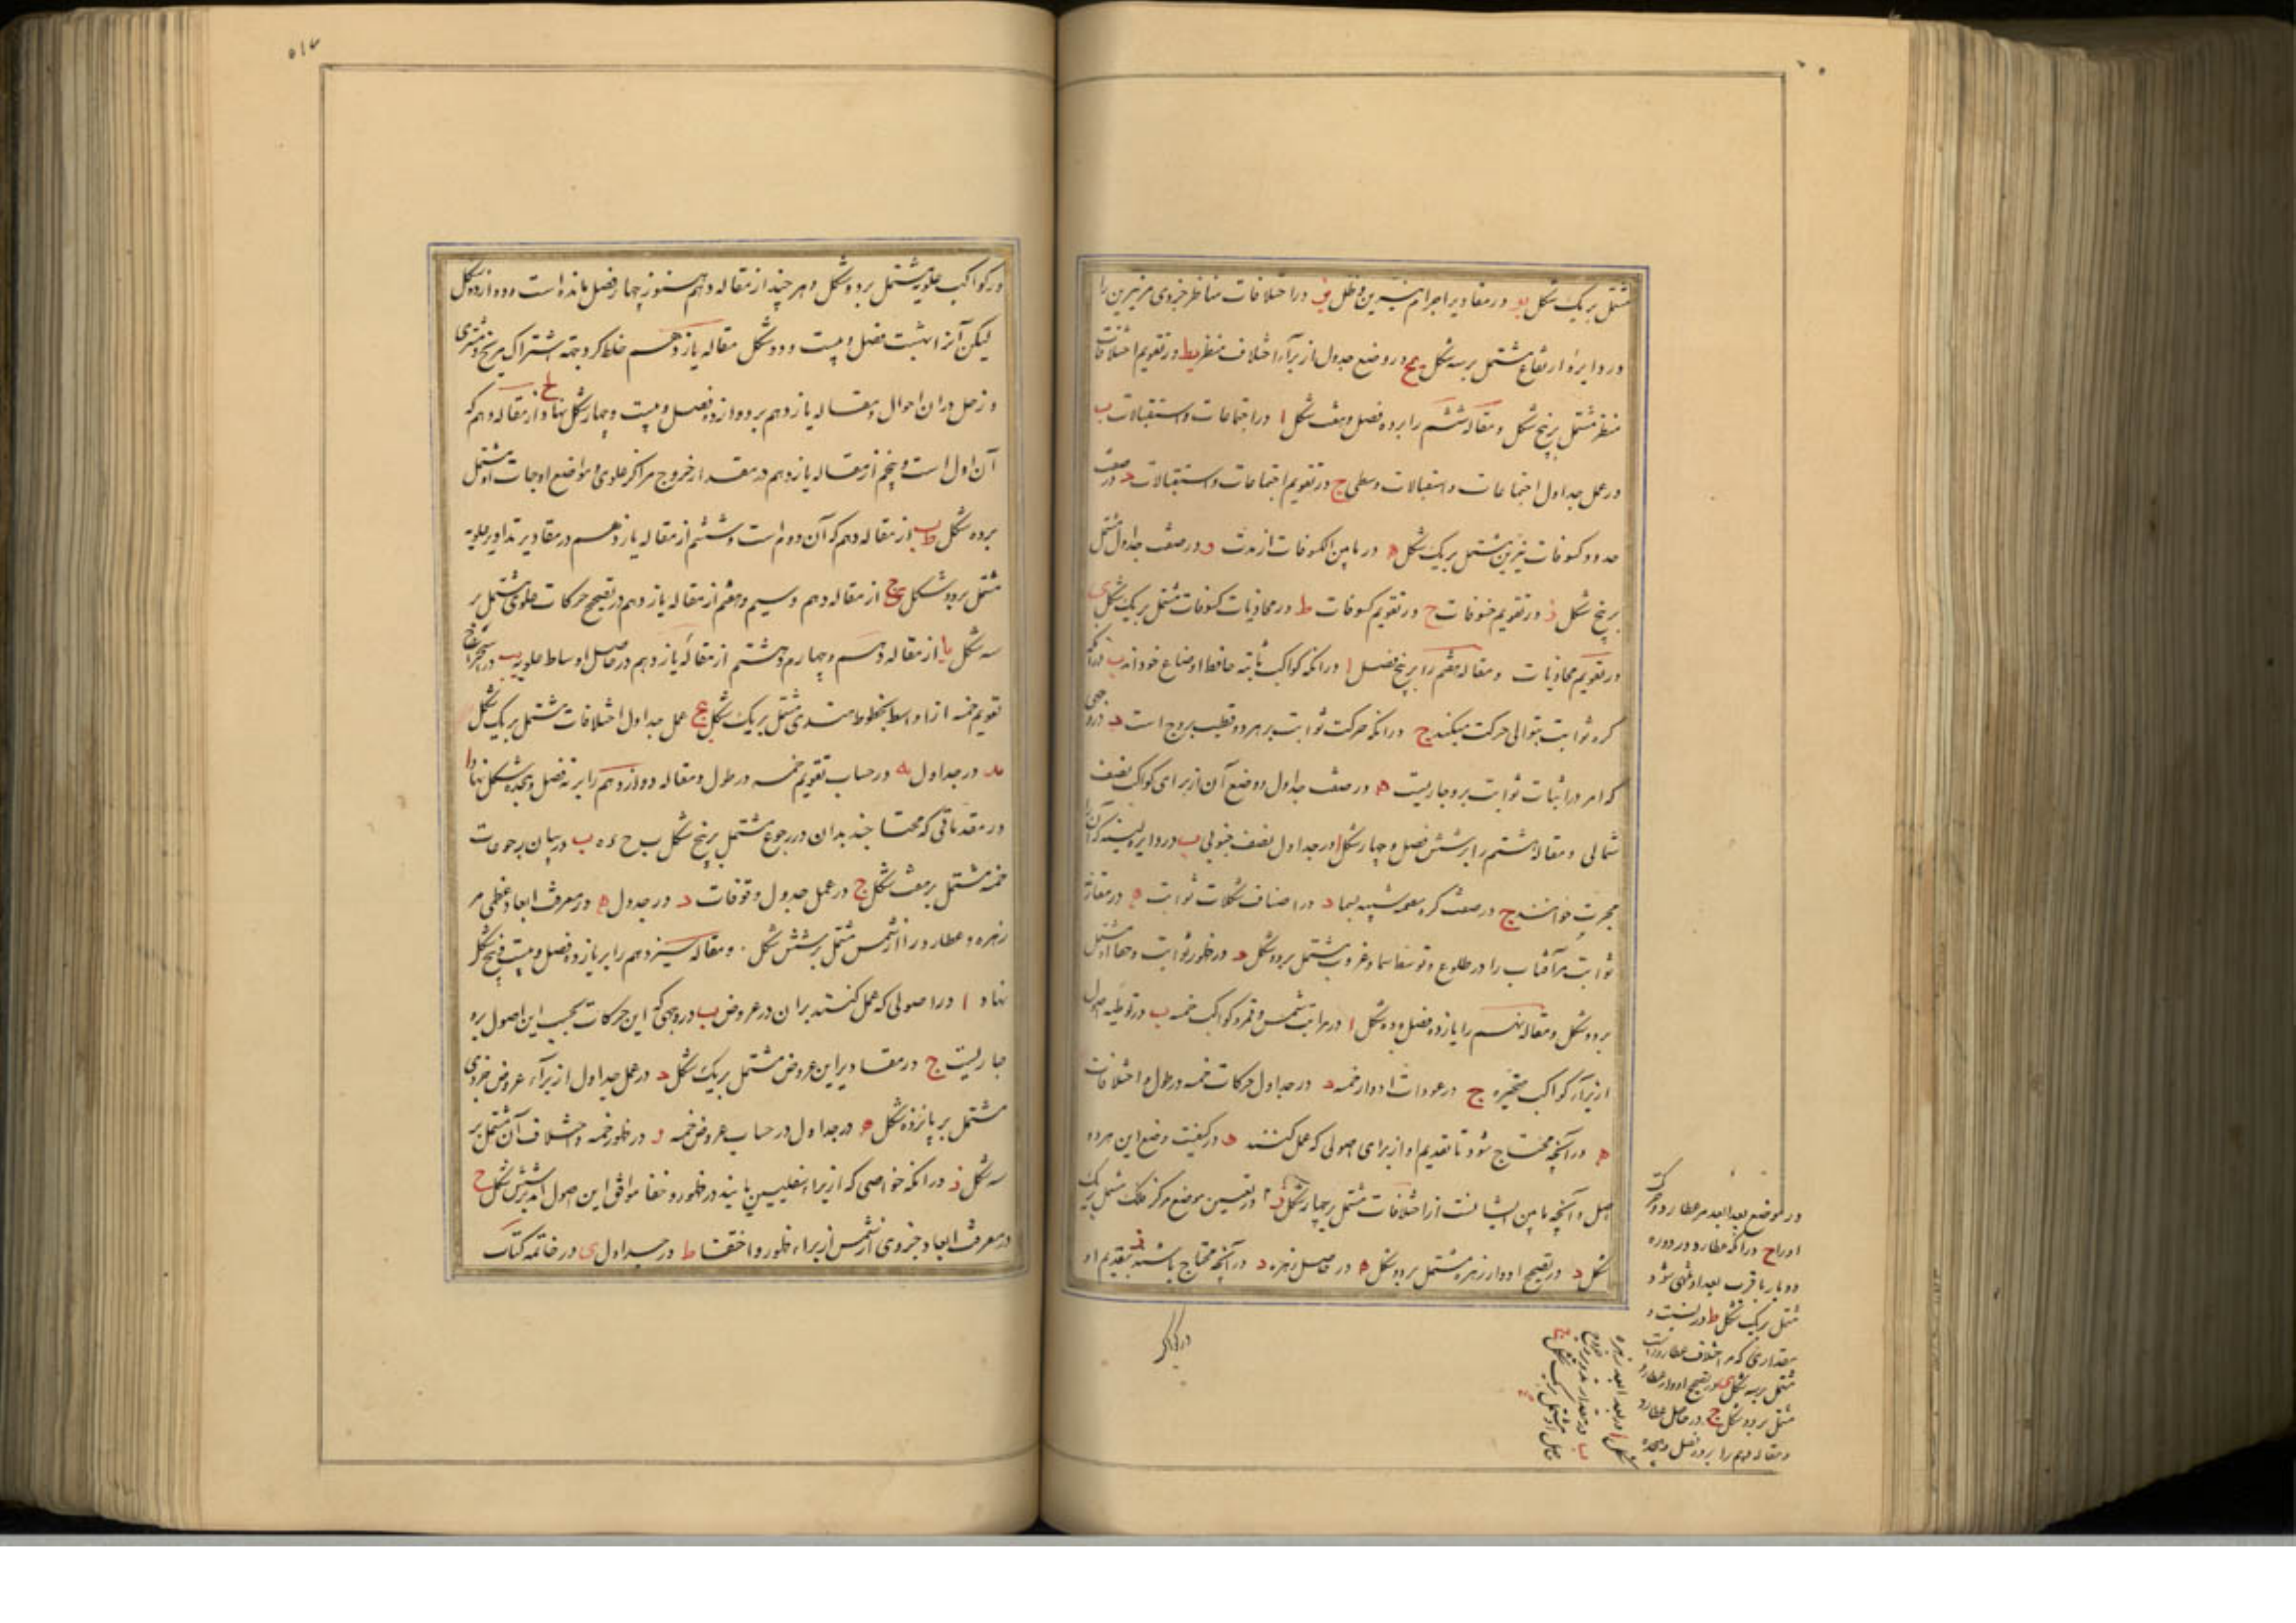 مشتمل بر یک شکل یو در مقادیر اجرام نیرین و ظل یز در اختلافات مناظر جزوی مر نیرین را
در دایرهٔ ارتفاع مشتمل بر سه شکل یح در وضع جدول از برای اختلاف منظر یط در تقویم اختلافات
منظر مشتمل بر پنج شکل و مقاله ششم را بر ده فصل و هفت شکل ا در اجتماعات و استقبالات ب
در عمل جداول اجتماعات و استقبالات وسطی ج در تقویم اجتماعات و استقبالات د در صفت
حدود کسوفات نیرین مشتمل بر یک شکل ه در ما بین الکسوفات از مدت و در صفت جداول مشتمل
بر پنج شکل ز در تقویم خسوفات ح در تقویم کسوفات ط در محاذیات کسوفات مشتمل بر یک شکل ی
در تقویم محاذیات و مقاله هفتم را بر پنج فصل ا در انکه کواکب ثابته حافظ اوضاع خود اند ب در انکه
کره ثوابت بتوالی حرکت میکند ج در انکه حرکت ثوابت بر هر دو قطب بروج است د در وجهی
که امر در اثبات ثوابت برو جاریست ه در صفت جداول و وضع آن از برای کواکب نصف
شمالی و مقاله هشتم را بر شش فصل و چهار شکل ا در جداول نصف جنوبی ب در دایره لبنیه که آن را
مجرت خوانند ج در صفت کره معموله شبیه بسما د در اصناف شکلات ثوابت ه در مقارنت
ثوابت مر آفتاب را در طلوع و توسط سما و غروب مشتمل بر دو شکل و در ظهور ثوابت و خفا او مشتمل
بر دو شکل و مقاله نهم را یازده فصل و ده شکل ا در مراتب شمس و قمر و کواکب خمسه ب در توطیه اصول
از برای کواکب متحیره ج در عودات ادوار خمسه د در جداول حرکات خمسه در طول و اختلافات
ه در آنچه محتاج شود تا تقدیم او از برای اصولی که عمل کنند و در کیفیت وضع این هر دو
اصل و آنچه ما بین ایشانست از اختلافات مشتمل بر چهار شکل ز در تعیین موضع مرکز فلک مشتمل بر یک
شکل د در تصحیح ادوار زهره مشتمل بر دو شکل ه در حاصل زهره د در آنچه محتاج باشند بتقدیم او
در موضع بعد ابعد مر عطارد و حرکت
او را ح در آنکه عطارد در دوره
دو بار با قرب بعد او منتهی شود
مشتمل بر یک شکل ط در نسبت و
مقداری که مر اختلاف عطارد راست
مشتمل بر سه شکل ی در تصحیح ادوار عطارد
مشتمل بر دو شکل در حاصل عطارد
و مقاله دهم را بر ده فصل و هجده
شکل ا در بعد ابعد زهره
ب در مقدار تدویر زهره
در کواکب
در کواکب علویه مشتمل بر دو شکل و هر چند از مقاله دهم هنوز چهار فصل مانده است و دوازده شکل
لیکن آنرا بهشت فصل و بیست و دو شکل مقاله یازدهم خلط کرد بجهة اشتراک مریخ و مشتری
و زحل در ان احوال و مقاله یازدهم بر دوازده فصل و بیست و چهار شکل نهاد ا از مقاله دهم که
آن اول است و پنجم از مقاله یازدهم در مقدار خروج مراکز علوی و مواضع اوجات او مشتمل
بر ده شکل ب از مقاله دهم که آن دوم است و ششم از مقاله یازدهم در مقادیر تداویر علویه
مشتمل بر دو شکل ج از مقاله دهم و سیم و هفتم از مقاله یازدهم در تصحیح حرکات علوی مشتمل بر
سه شکل یا از مقاله دهم و چهارم و هشتم از مقاله یازدهم در حاصل اوساط علویه یب در استخراج
تقویم خمسه از اواسط بخطوط هندسی مشتمل بر یک شکل یج عمل جداول اختلافات مشتمل بر یک شکل
ید در جداول یه در حساب تقویم خمسه در طول و مقاله دوازدهم را بر نه فصل و هجده شکل نهاد ا
در مقدماتی که محتاجند بدان در رجوع مشتمل بر پنج شکل ب در بیان رجوعات
خمسه مشتمل بر هفت شکل ج در عمل جدول وقوفات د در جدول ه در معرفت ابعاد عظمی مر
زهره و عطارد را از شمس مشتمل بر شش شکل . و مقاله سیزدهم را بر یازده فصل و بیست و پنج شکل
نهاد ا در اصولی که عمل کنند بران در عروض ب در وجهی که این حرکات بحسب این اصول برو
جاریست ج در مقادیر این عروض مشتمل بر یک شکل د در عمل جداول از برای عروض جزوی
مشتمل بر پانزده شکل ه در جداول در حساب عروض خمسه و در ظهور خمسه و اختلاف آن مشتمل بر
سه شکل ز در انکه خواصی که از برای سفلیین یابند در ظهور و خفا موافق این اصول اند بر شش شکل ح
در معرفت ابعاد جزوی از شمس از برای ظهور و اختفا ط در جداول ی در خاتمه کتاب